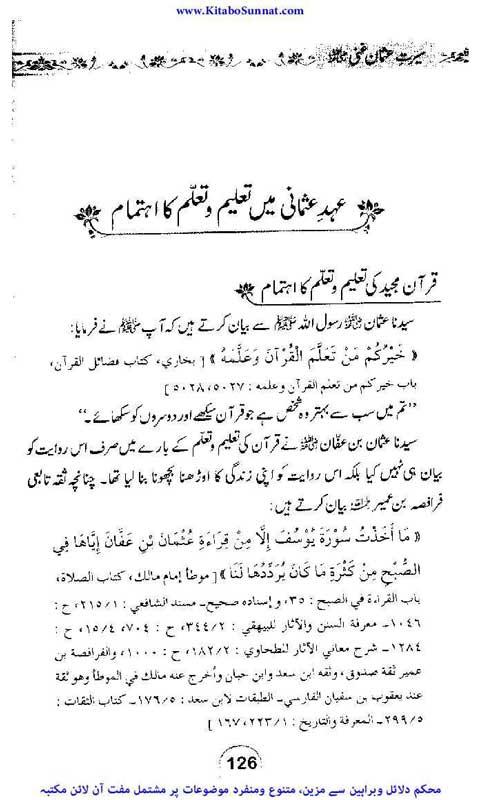 www.KitaboSunnat.com
سیرتِ عثمان غنی رضی اللہ عنہ
عہدِ عثمانی میں تعلیم و تعلّم کا اہتمام
قرآن مجید کی تعلیم و تعلّم کا اہتمام
سیدنا عثمان رضی اللہ عنہ رسول اللہ ﷺ سے بیان کرتے ہیں کہ آپ ﷺ نے فرمایا:
« خَيْرُكُمْ مَنْ تَعَلَّمَ الْقُرْآنَ وَعَلَّمَهُ » [ بخاري، كتاب فضائل القرآن،
باب خيركم من تعلم القرآن وعلمه : ٥٠٢٧، ٥٠٢٨ ]
’’تم میں سب سے بہتر وہ شخص ہے جو قرآن سیکھے اور دوسروں کو سکھائے۔‘‘
سیدنا عثمان بن عفّان رضی اللہ عنہ نے قرآن کی تعلیم و تعلم کے بارے میں صرف اس روایت کو
بیان ہی نہیں کیا بلکہ اس روایت کو اپنی زندگی کا اوڑھنا بچھونا بنا لیا تھا۔ چنانچہ ثقہ تابعی
فرافصہ بن عمیر رحمہ اللہ بیان کرتے ہیں:
« مَا أَخَذْتُ سُوْرَةَ يُوْسُفَ إِلَّا مِنْ قِرَاءَةِ عُثْمَانَ بْنِ عَفَّانَ إِيَّاهَا فِي
الصُّبْحِ مِنْ كَثْرَةِ مَا كَانَ يُرَدِّدُهَا لَنَا » [ موطأ إمام مالك، كتاب الصلاة،
باب القراءة في الصبح : ٣٥، و إسناده صحيح۔ مسند الشافعي : ٢١٥/١، ح :
١٠٤٦۔ معرفة السنن والآثار للبيهقي : ٣٤٤/٢، ح : ٧٠٤، ١٥/٤، ح :
١٢٨٤۔ شرح معاني الآثار للطحاوي : ١٨٢/٢، ح : ١٠٠٠، والفرافصة بن
عمير ثقة صدوق، وثقه ابن سعد وابن حبان وأخرج عنه مالك في الموطأ وهو ثقة
عند يعقوب بن سفيان الفارسي۔ الطبقات لابن سعد : ١٧٦/٥۔ كتاب الثقات :
٢٩٩/٥۔ المعرفة والتاريخ : ٢٢٣/١، ١٦٧ ]
126
محکم دلائل وبراہین سے مزین، متنوع ومنفرد موضوعات پر مشتمل مفت آن لائن مکتبہ